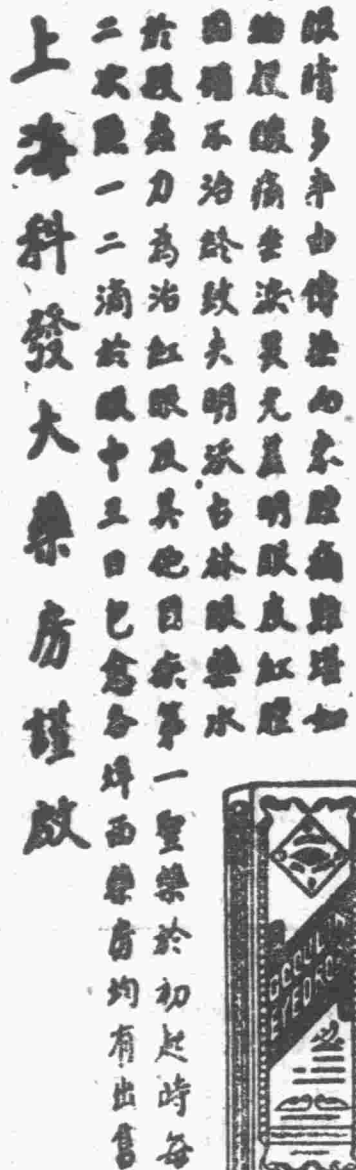 眼睛多半由傳染而來腫痛難堪如
物侵酸痛垂淚畏光羞明眼皮紅腫
因循不治終致失明沃古林眼藥水
於殺菌力為治紅眼及其他目疾第一聖藥於初起時每
二次點一二滴於眼中三日包愈各埠西藥房均有出售
上海科發大藥房謹啟
OCCULIN
EYEDROPS